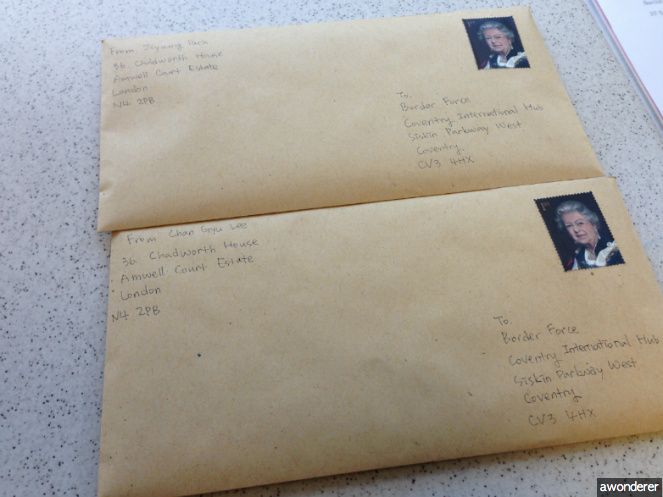 From. Jiyoung Park
36. Chadworth House
Amwell Court Estate
London
N4 2PB
To.
Border Force
Coventry International Hub
Siskin Parkway West
Coventry.
CV3 4HX
From Chan Gyu Lee
36. Chadworth House
Amwell Court Estate
London
N4 2PB
To.
Border Force
Coventry International Hub
Siskin Parkway West
Coventry
CV3 4HX
awonderer